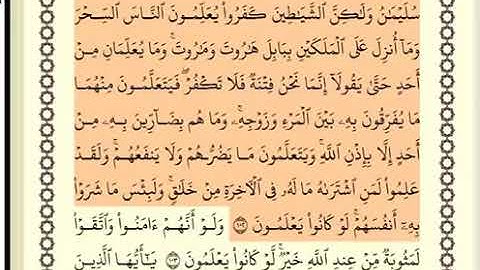 سُلَيْمَـٰنُ وَلَـٰكِنَّ ٱلشَّيَـٰطِينَ كَفَرُوا۟ يُعَلِّمُونَ ٱلنَّاسَ ٱلسِّحْرَ
وَمَآ أُنزِلَ عَلَى ٱلْمَلَكَيْنِ بِبَابِلَ هَـٰرُوتَ وَمَـٰرُوتَ ۚ وَمَا يُعَلِّمَانِ مِنْ
أَحَدٍ حَتَّىٰ يَقُولَآ إِنَّمَا نَحْنُ فِتْنَةٌ فَلَا تَكْفُرْ ۖ فَيَتَعَلَّمُونَ مِنْهُمَا
مَا يُفَرِّقُونَ بِهِۦ بَيْنَ ٱلْمَرْءِ وَزَوْجِهِۦ ۚ وَمَا هُم بِضَآرِّينَ بِهِۦ مِنْ
أَحَدٍ إِلَّا بِإِذْنِ ٱللَّهِ ۚ وَيَتَعَلَّمُونَ مَا يَضُرُّهُمْ وَلَا يَنفَعُهُمْ ۚ وَلَقَدْ
عَلِمُوا۟ لَمَنِ ٱشْتَرَىٰهُ مَا لَهُۥ فِى ٱلْـَٔاخِرَةِ مِنْ خَلَـٰقٍ ۚ وَلَبِئْسَ مَا شَرَوْا۟
بِهِۦٓ أَنفُسَهُمْ ۚ لَوْ كَانُوا۟ يَعْلَمُونَ ١٠٢ وَلَوْ أَنَّهُمْ ءَامَنُوا۟ وَٱتَّقَوْا۟
لَمَثُوبَةٌ مِّنْ عِندِ ٱللَّهِ خَيْرٌ ۖ لَّوْ كَانُوا۟ يَعْلَمُونَ ١٠٣ يَـٰٓأَيُّهَا ٱلَّذِينَ